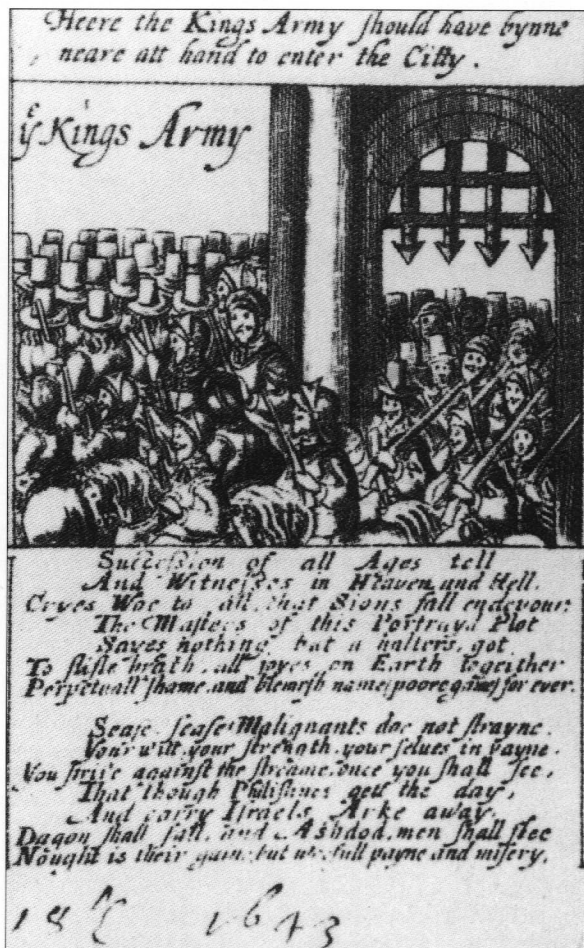 Heere the Kings Army ſhould have bynne
neare att hand to enter the Citty.
yᵉ Kings Army
Succeſsion of all Ages tell
And Witneſses in Heaven and Hell.
Cryes Woe to all that Sions fall endevour:
The Maſters of this Portrayd Plot
Saves nothing but a halters got
To ſtifle breath, all joyes on Earth together
Perpetuall ſhame, and blemiſh names poore gaines for ever.
Seaſe ſeaſe Malignants doe not ſtrayne.
Your witt, your ſtrength, your ſelues in vayne.
You ſtrive againſt the ſtreame, once you ſhall ſee,
That though Philiſtines gett the day,
And carry Iſraels Arke away.
Dagon ſhall fall, and Aſhdod, men ſhall flee
Nought is their gain, but wofull payne and miſery.
1643